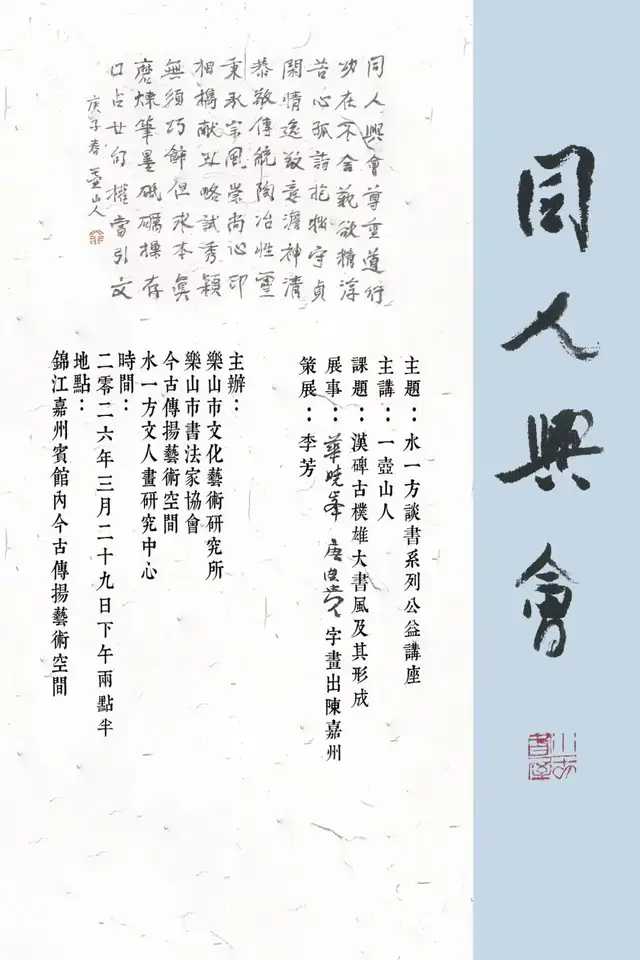 同人興會
同人興會尊重道行
功在不舍藐欲精淳
苦心孤詣抱樸守貞
閑情逸致意澹神清
恭敬傳統陶冶性靈
秉承宗風崇尚心印
相攜献丑略試秀穎
無須巧飾但求本真
磨煉筆墨砥礪操存
口占廿句權當引文
庚子春 壺山人
主題：水一方談書系列公益講座
主講：一壺山人
課題：漢碑古樸雄大書風及其形成
展事：華曉峯 唐白濤 字畫出陳嘉州
策展：李芳
主辦：
樂山市文化藝術研究所
樂山市書法家協會
今古傳揚藝術空間
水一方文人畫研究中心
時間：
二零二六年三月二十九日下午兩點半
地點：
錦江嘉州賓館內今古傳揚藝術空間